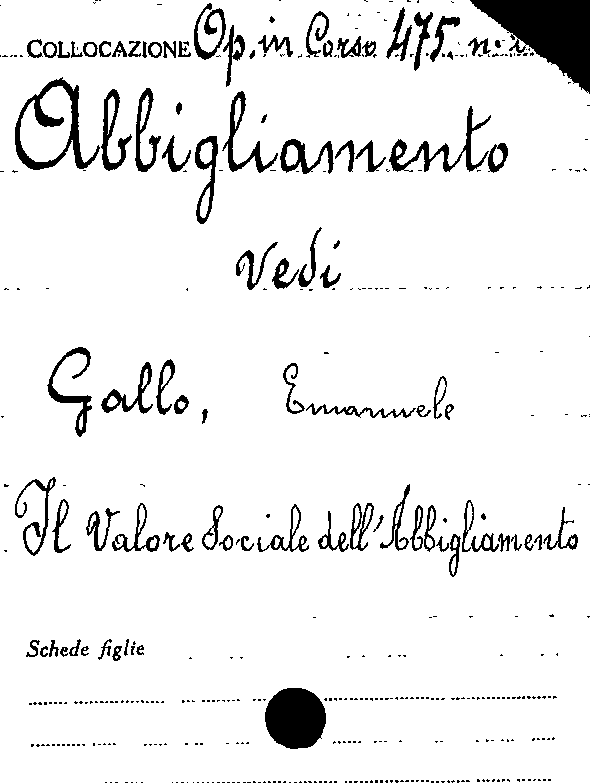 COLLOCAZIONE Op. in Corso 475. n.
Abbigliamento
Vedi
Gallo, Emanuele
Il Valore Sociale dell'Abbigliamento
Schede figlie